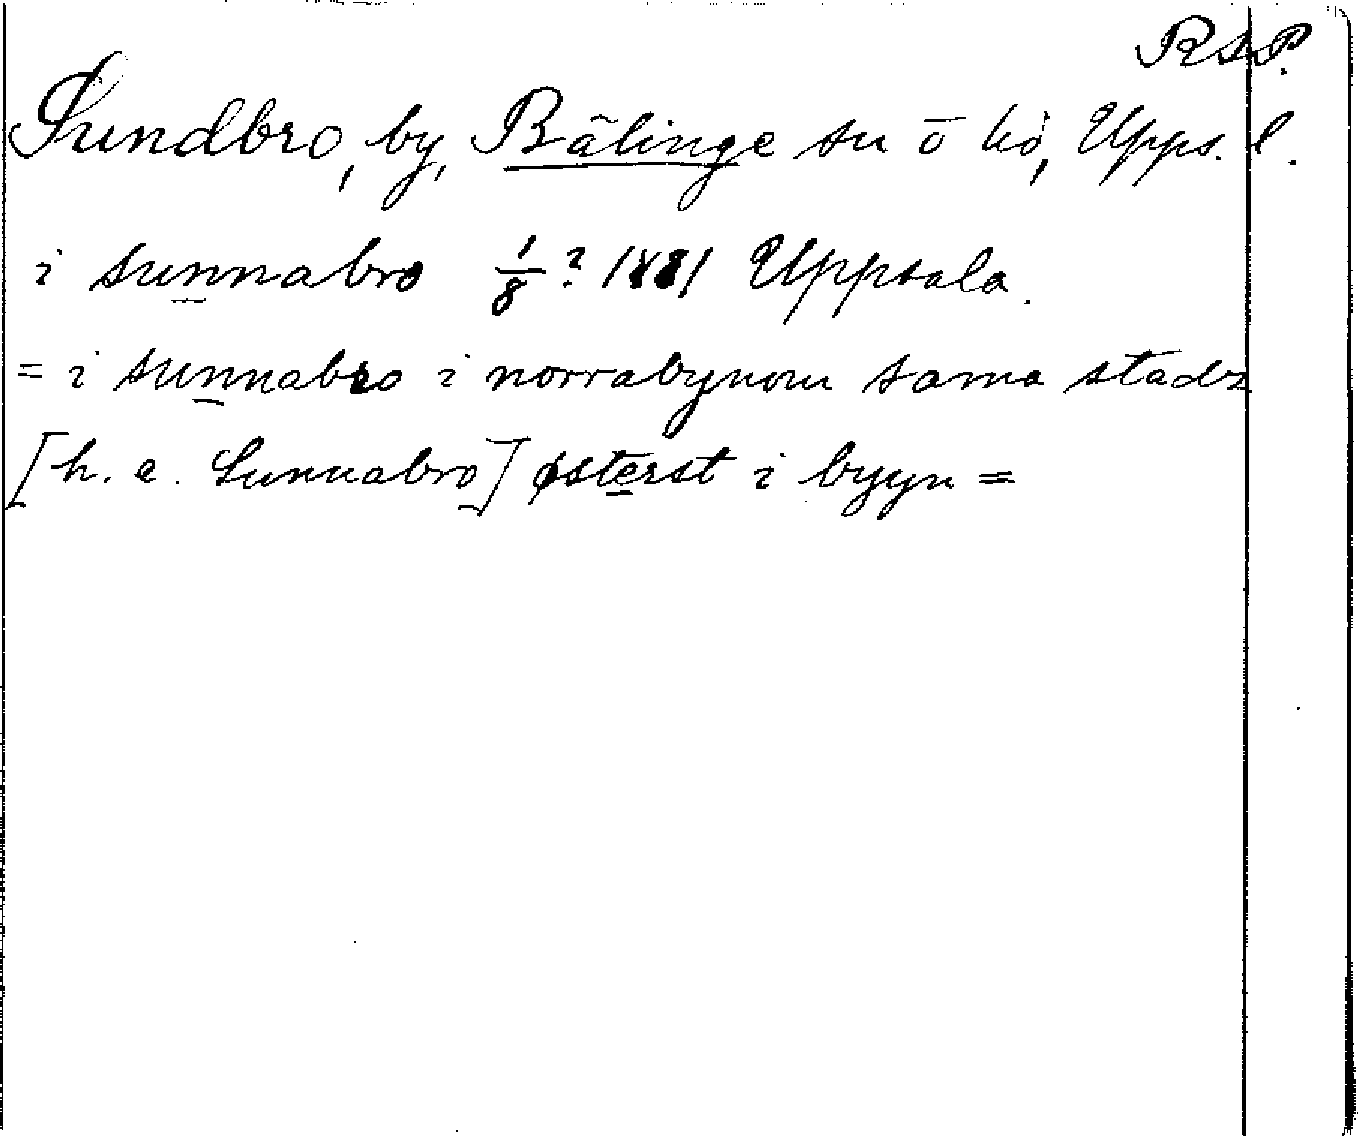 RAP.
Sundbro, by, Bälinge sn o hd, Upps. l.
i sunnabro 1/8? 1481 Uppsala.
= i sunnabro i norrabynom sama stadz
[h. e. Sunnabro] østerst i byyn =